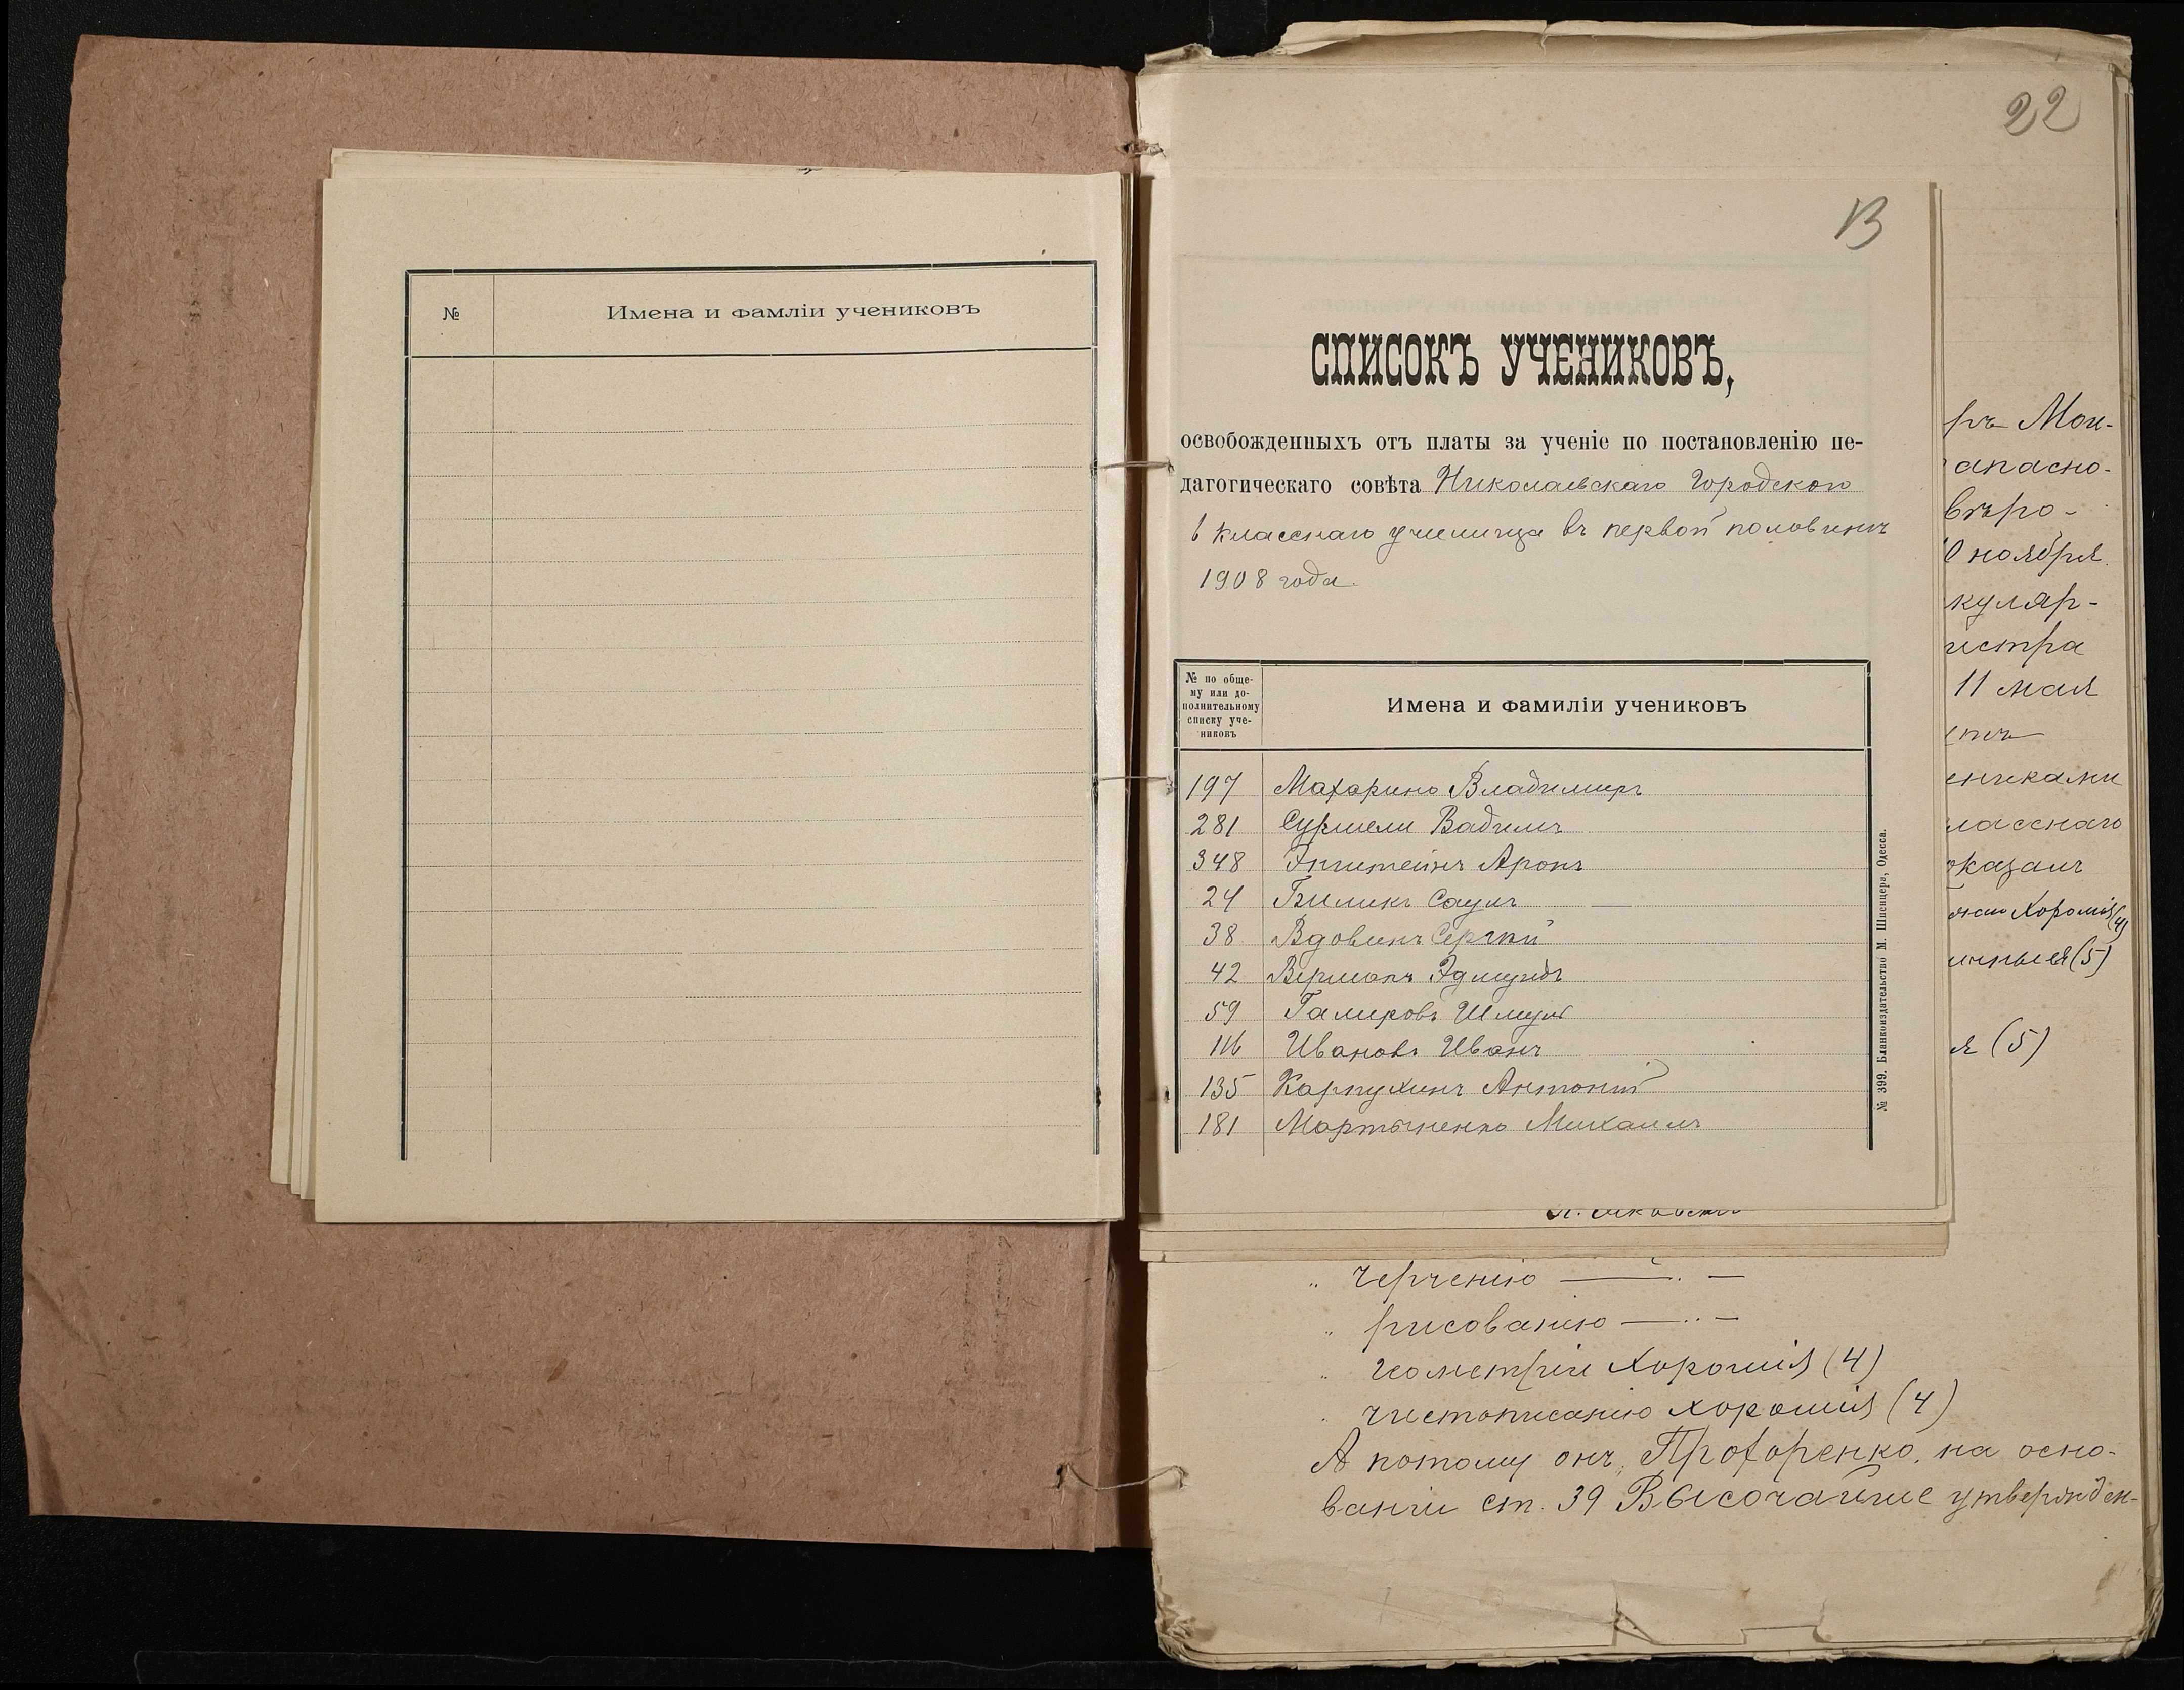 №
Имена и фамліи учениковъ
22
13
СПИСОКЪ УЧЕНИКОВЪ,
освобожденныхъ отъ платы за ученіе по постановленію пе-
дагогическаго совѣта Николаевскаго Городского
6 класснаго училища въ первой половинѣ
1908 года.
№ по обще-
му или до-
полнительному
списку уче-
никовъ
Имена и фамиліи учениковъ
197 Махарино Владимиръ
281 Сурмели Вадимъ
348 Эпштейнъ Аронъ
24 Биликъ Саулъ —
38 Вдовинъ Сергѣй
42 Верманъ Эдмундъ
59 Галировъ Шмуль
116 Ивановъ Иванъ
135 Карпухинъ Антоній
181 Мартыненко Михаилъ
№ 399. Бланкоиздательство М. Шпенцера, Одесса.
ръ Мои-
апасно-
вѣро-
0 ноября
куляр-
истра
11 мая
ениками
ласснаго
оказалъ
Хорошія (4)
(5)
я (5)
„ черченію — „ —
„ рисованію — „ —
„ геометріи Хорошія (4)
„ чистописанію хорошія (4)
А потому онъ, Прохоренко, на осно-
ваніи ст. 39 Высочайше утвержден-